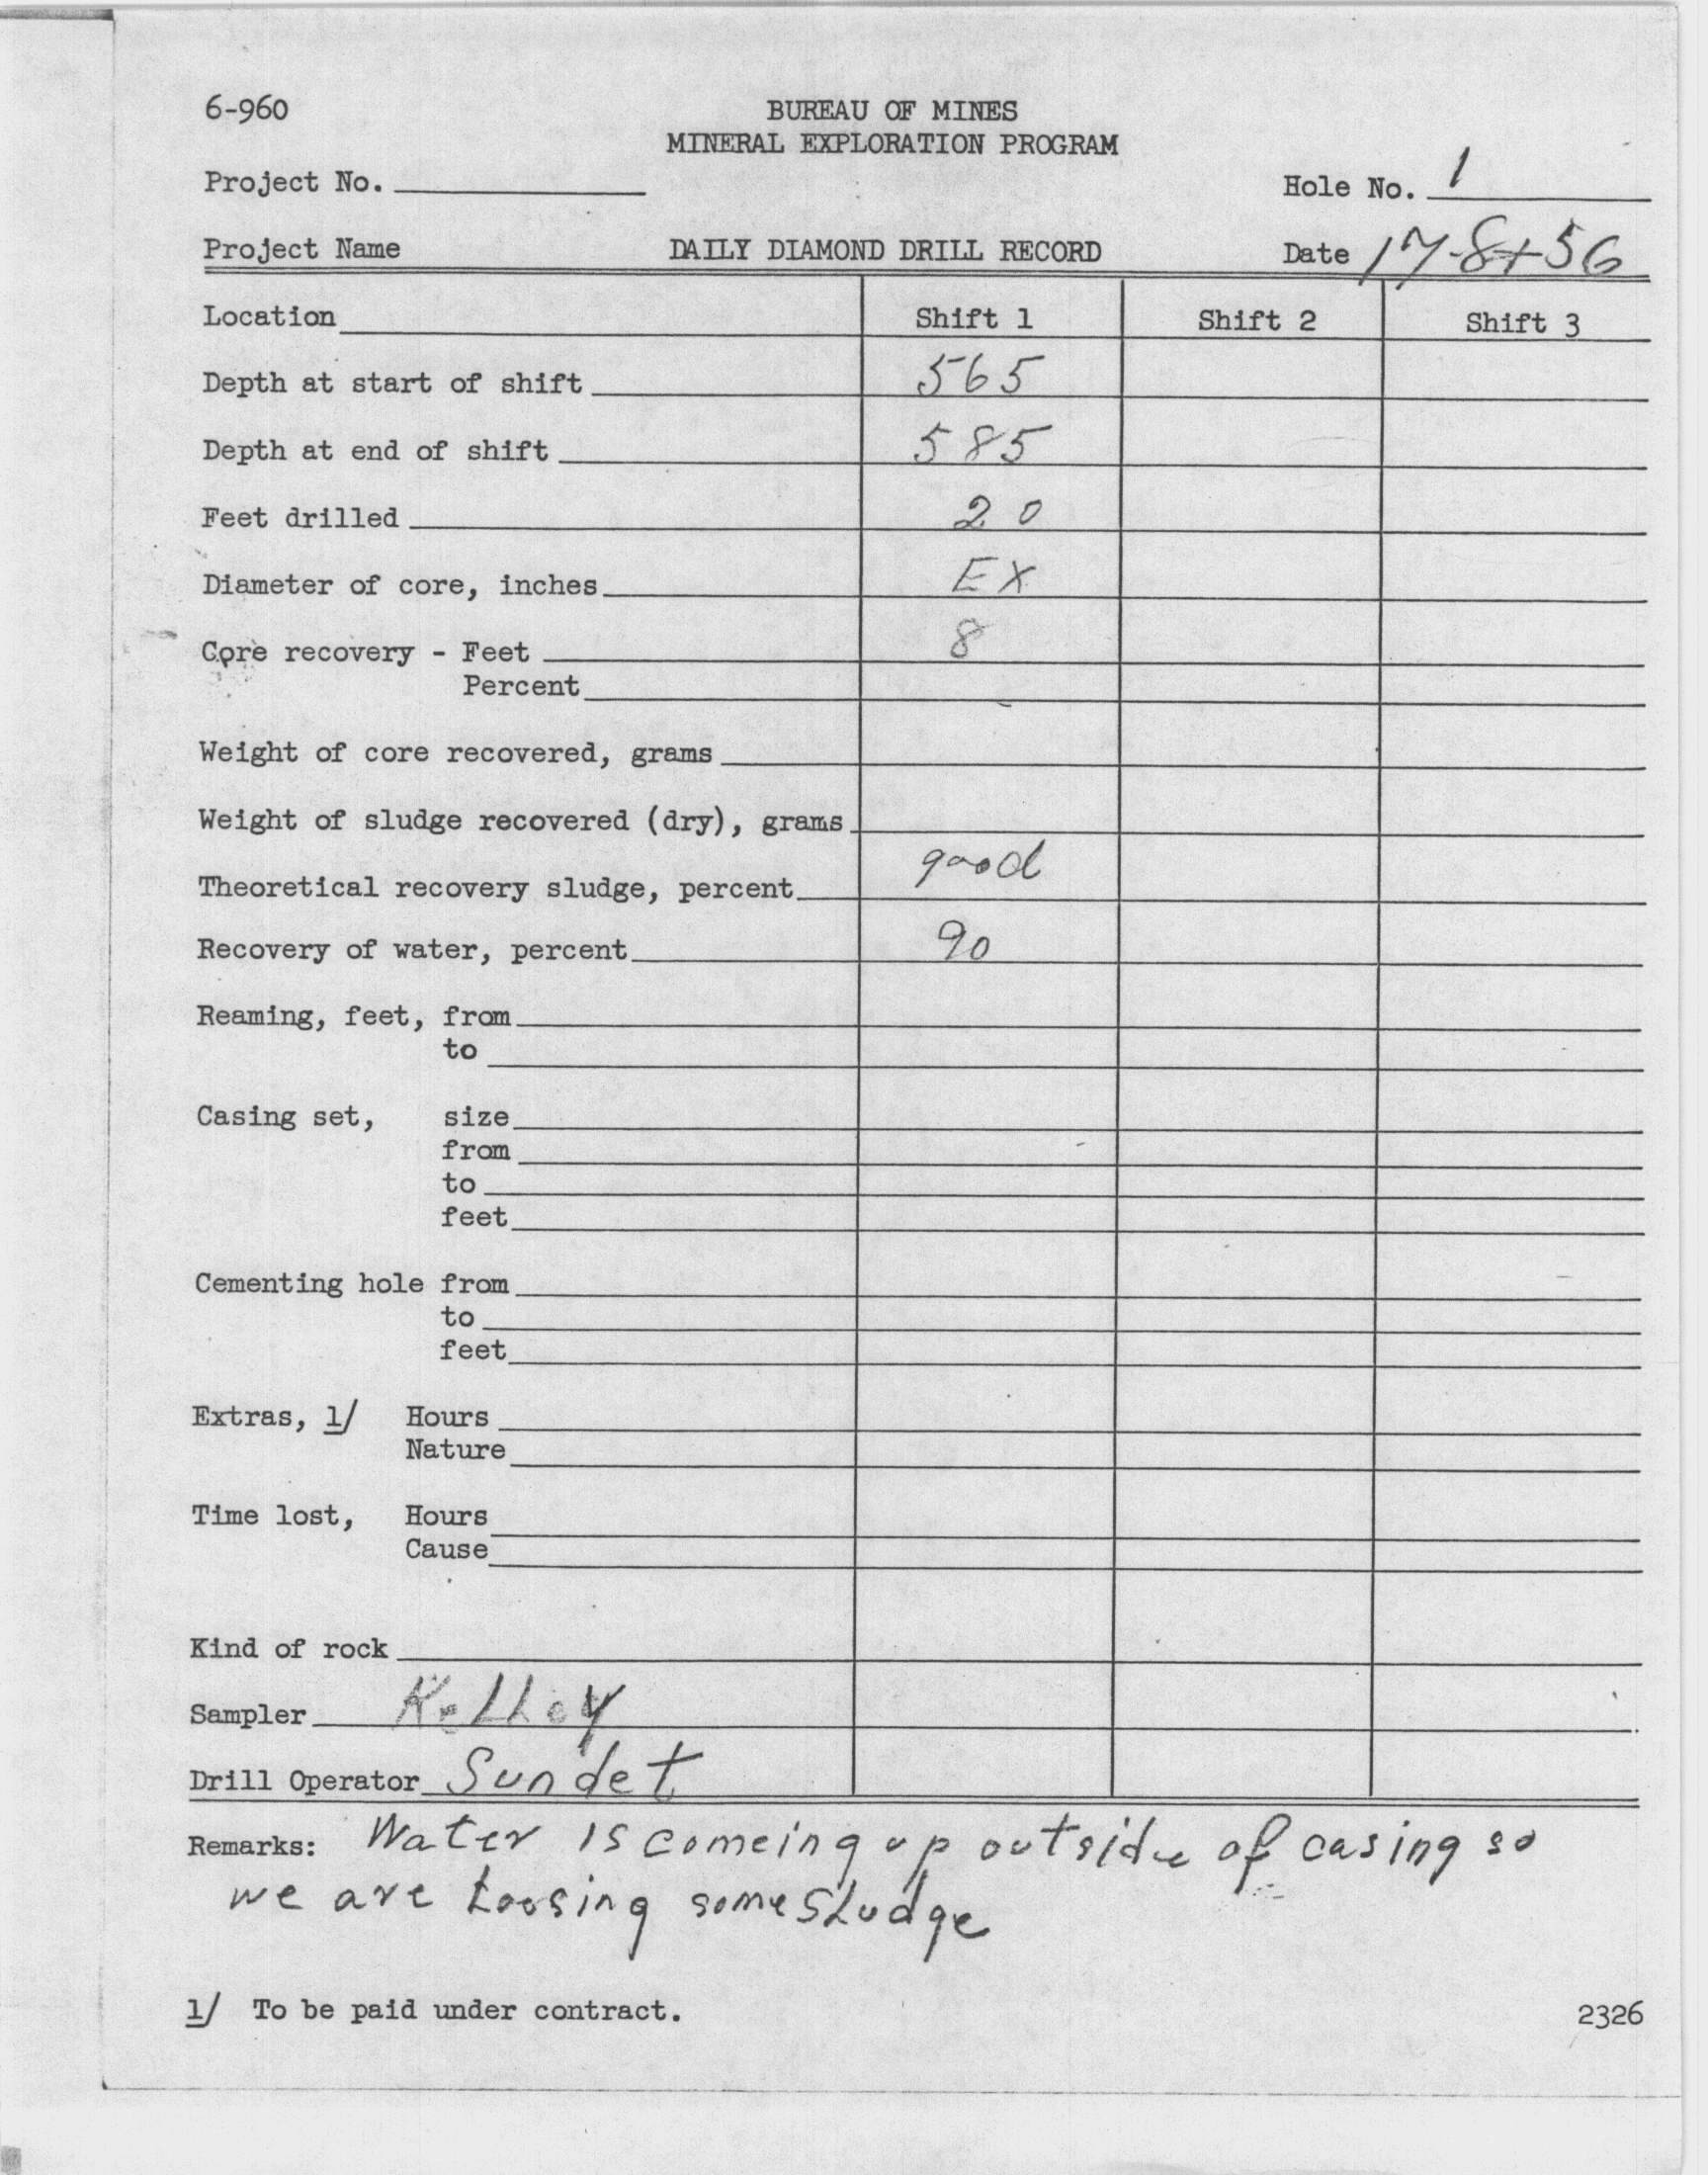 6-960
BUREAU OF MINES
MINERAL EXPLORATION PROGRAM
Project No.
Hole No. 1
Project Name DAILY DIAMOND DRILL RECORD Date
Location Shift 1 Shift 2 Shift 3
Depth at start of shift 565
Depth at end of shift 585
Feet drilled 20
Diameter of core, inches EX
Core recovery - Feet 8
Percent
Weight of core recovered, grams
Weight of sludge recovered (dry), grams
Theoretical recovery sludge, percent good
Recovery of water, percent 90
Reaming, feet, from
to
Casing set, size
from
to
feet
Cementing hole from
to
feet
Extras, 1/ Hours
Nature
Time lost, Hours
Cause
Kind of rock
Sampler Kelley
Drill Operator Sundet
Remarks: Water is comeing up outside of casing so
we are Loosing some Sludge
1/ To be paid under contract.
2326